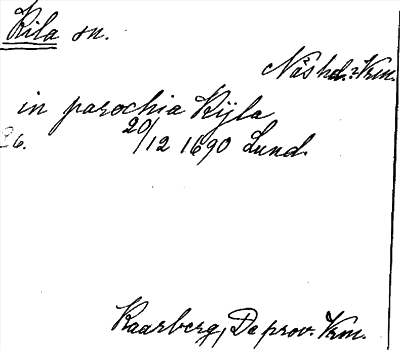 Kila sn.
Näs hd. Vrm.
in parochia Kijla
26. 20/12 1690 Lund.
Kaarberg, De prov. Vrm.